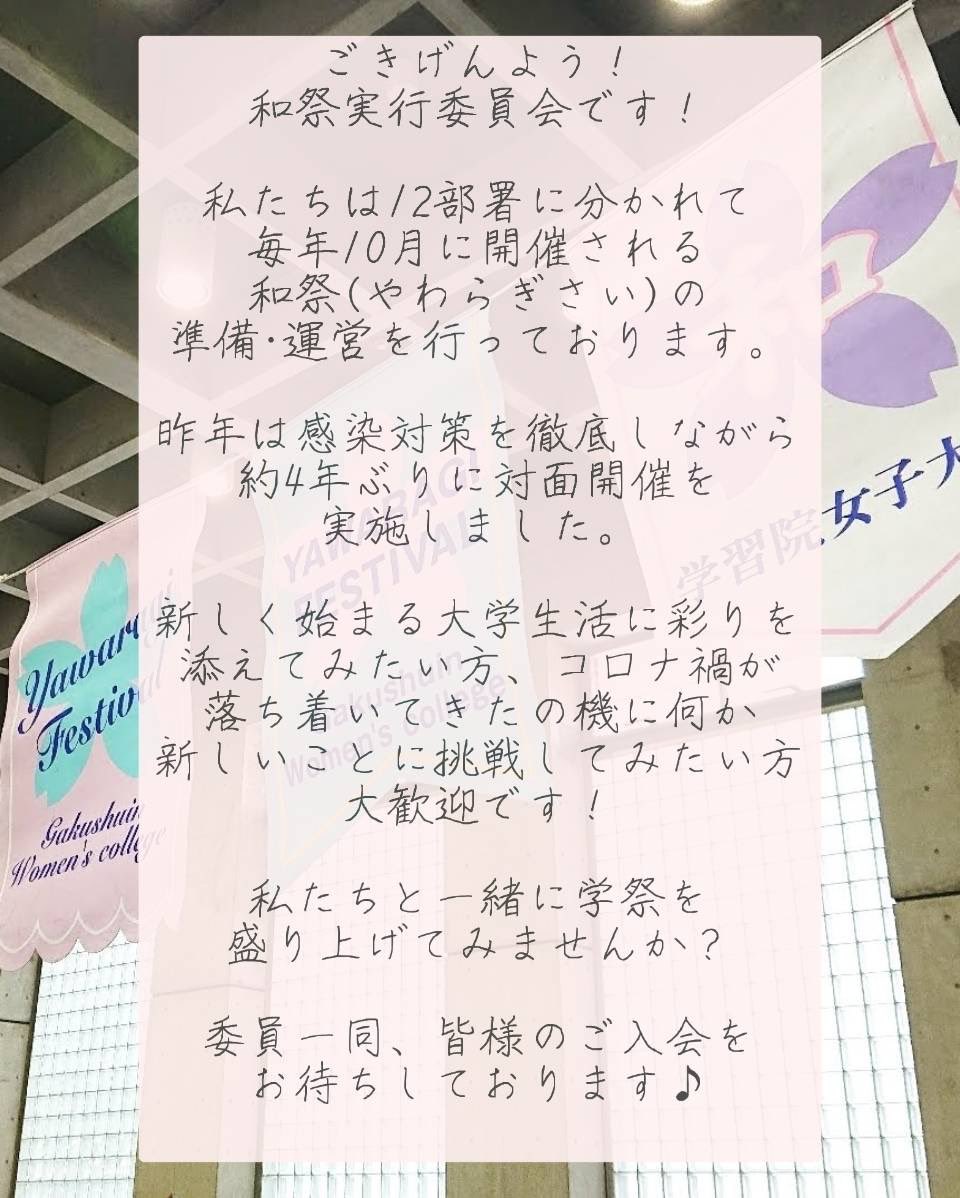 ごきげんよう！
和祭実行委員会です！
私たちは12部署に分かれて
毎年10月に開催される
和祭(やわらぎさい)の
準備･運営を行っております。
昨年は感染対策を徹底しながら
約4年ぶりに対面開催を
実施しました。
新しく始まる大学生活に彩りを
添えてみたい方、コロナ禍が
落ち着いてきたの機に何か
新しいことに挑戦してみたい方
大歓迎です！
私たちと一緒に学祭を
盛り上げてみませんか？
委員一同、皆様のご入会を
お待ちしております♪
Yawaragi
Festival
Gakushuin
Women's college
YAWARAGI
FESTIVAL
Gakushuin
Women's college
学習院女子大